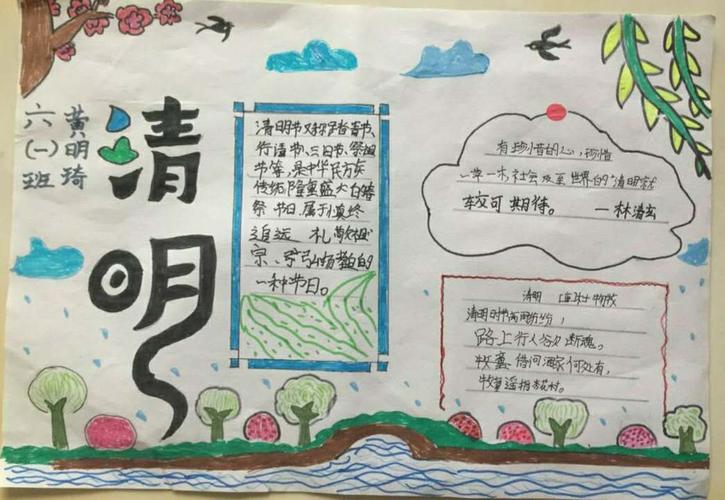 清明
六(一)班
黄明琦
清明节又称踏青节、
行清节、三月节、祭祖
节等,是中华民族
传统隆重盛大的春
祭节日,属于慎终
追远、礼敬祖
宗、
一种节日。
有珍惜的心,珍惜
一草一木,社会及至世界的“清明
较可期待。 —林清玄
清明 杜牧
清明时节雨纷纷,
路上行人欲断魂。
借问酒家何处有,
牧童遥指杏花村。